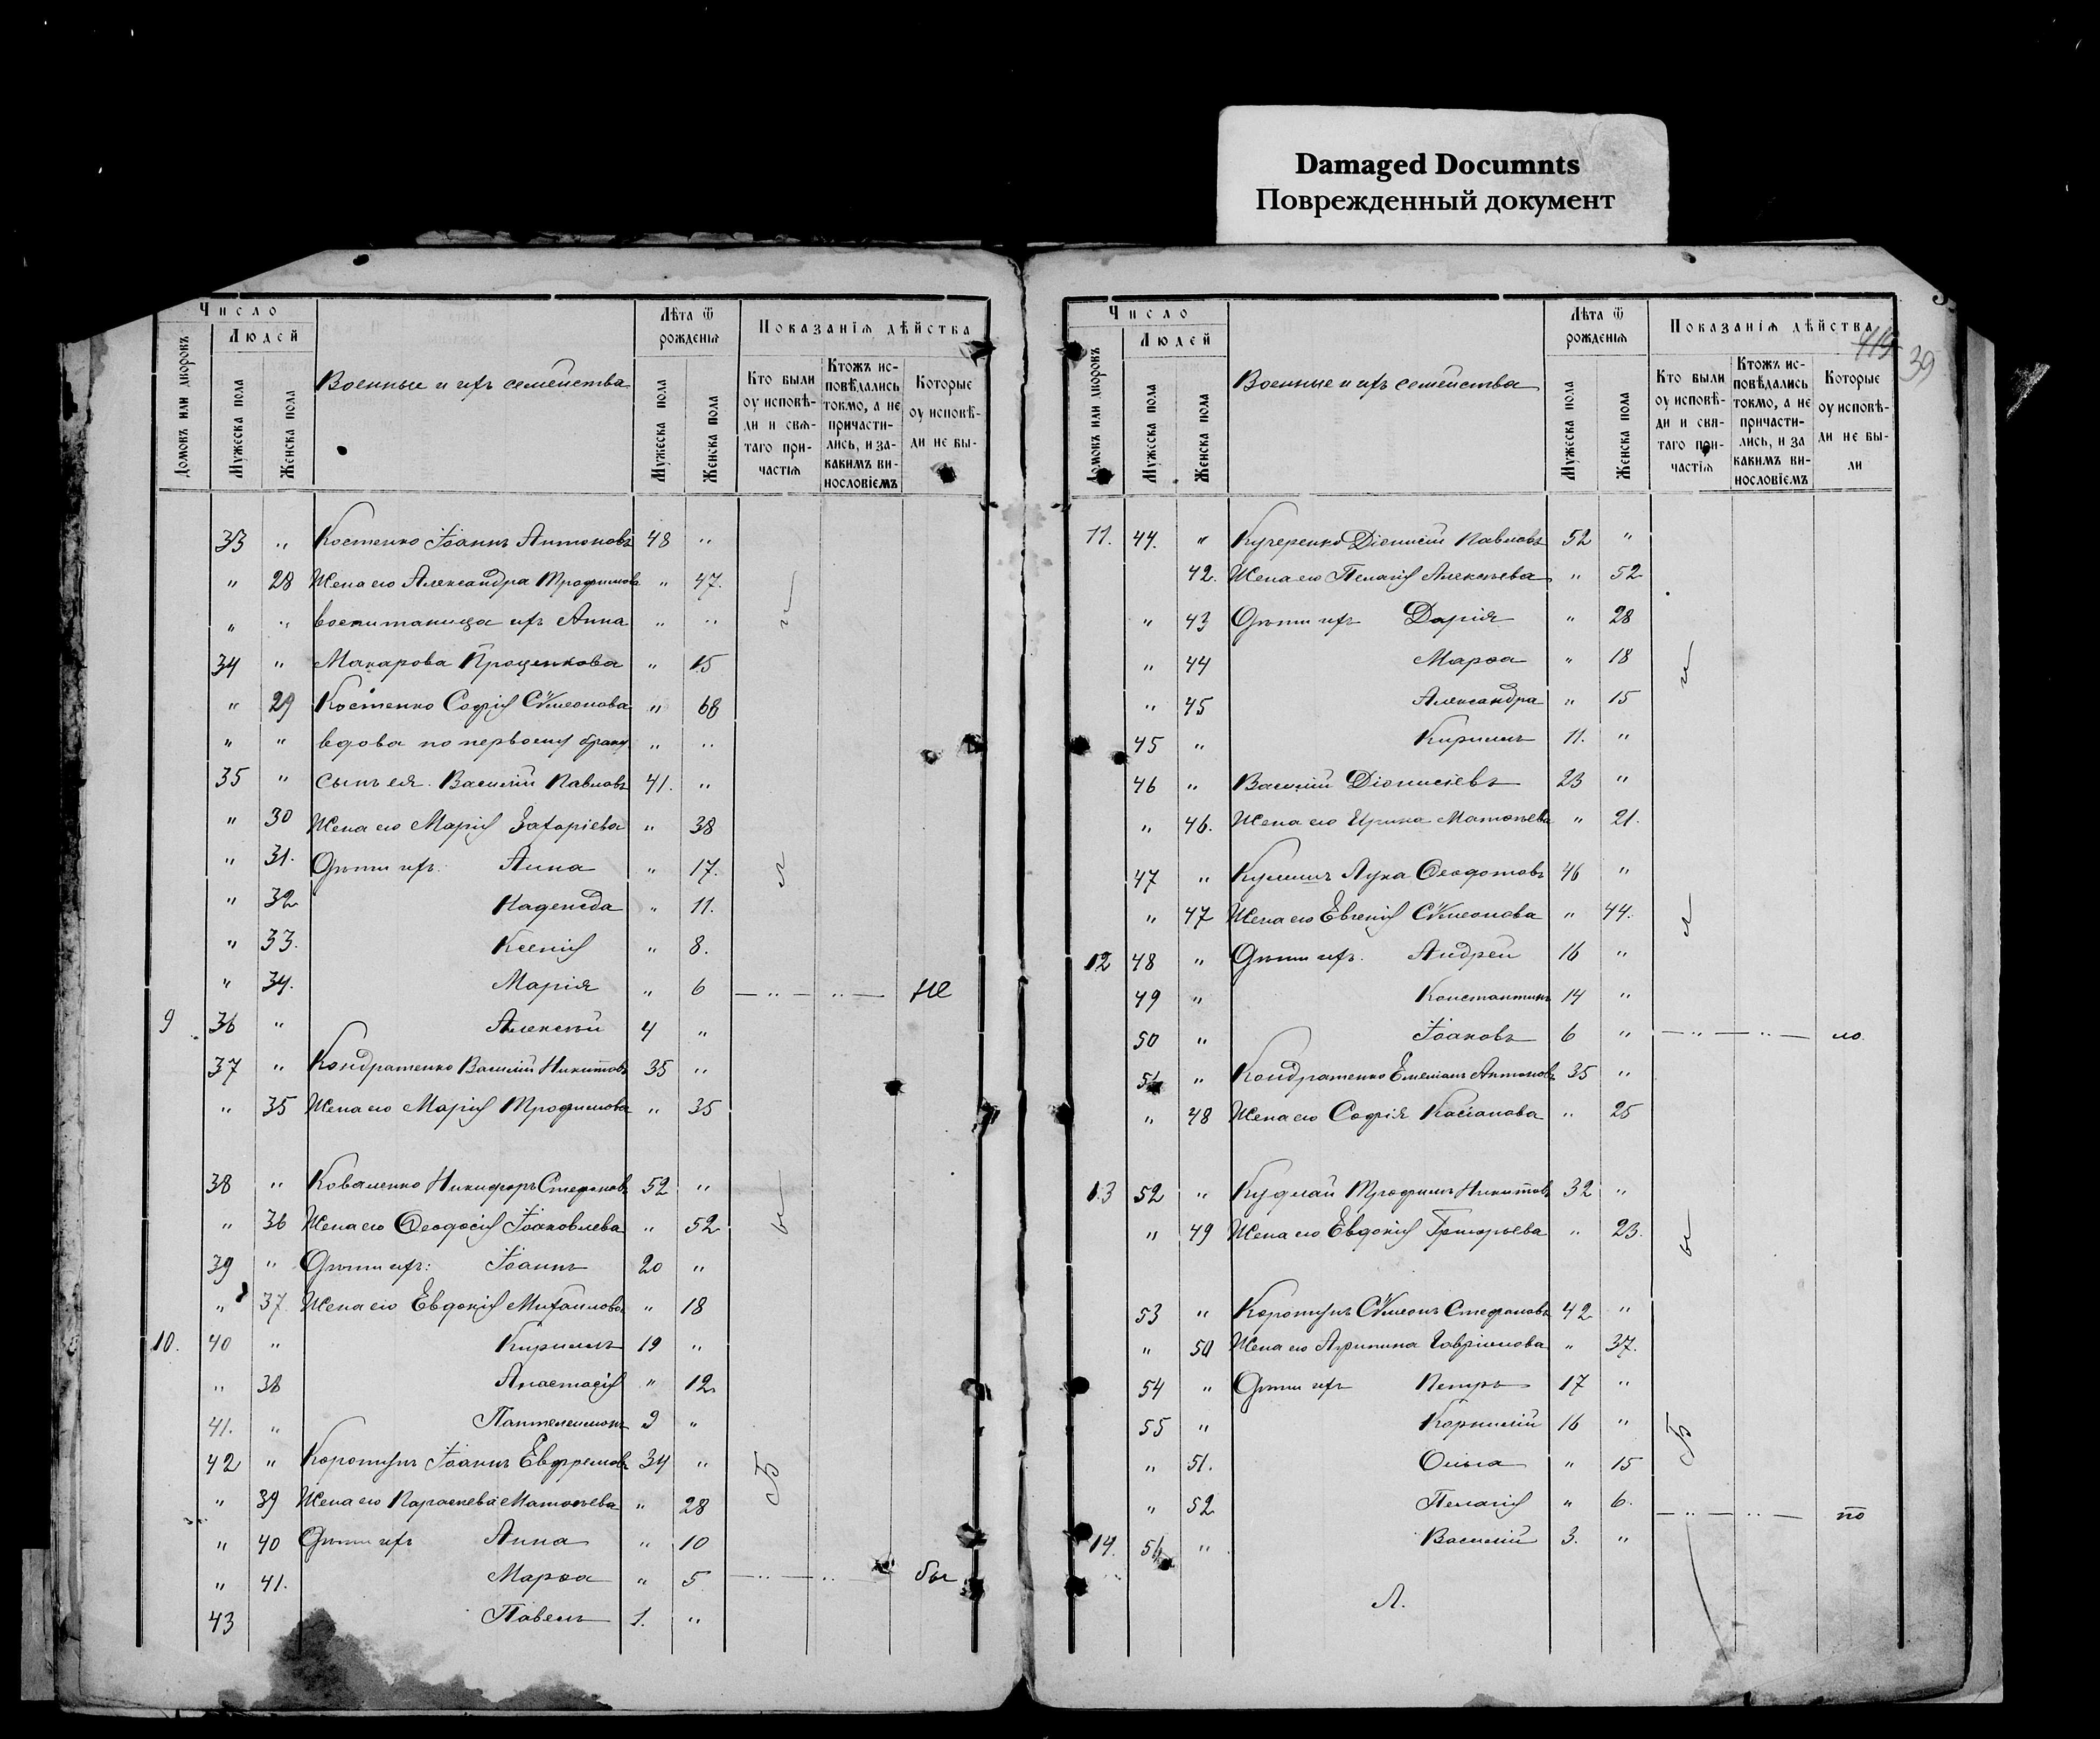 Damaged Documnts
Поврежденный документ
Число
Людей
Домовъ или дворовъ
Мужеска пола
Женска пола
Военные и ихъ семейства
Лѣта ѿ рожденїѧ
Мужеска пола
Женска пола
Показанїѧ дѣйства
Кто были оу исповѣ-ди и свѧ-таго при-частїѧ
Ктожъ ис-повѣдались токмо, а не причасти-лись, и за-какимъ ви-нословїемъ
Которые оу исповѣ-ди не бы-
33 " Костенко Іоаннъ Антоновъ 48 "
" 28 Жена его Александра Трофимова " 47.
" " воспитаница ихъ Анна " "
34 " Макарова Проценкова " 15
" 29 Костенко Софія Сѵмеонова " 68
" " вдова по первому браку " "
35 " сынъ ея. Василій Павловъ 41. "
" 30 Жена его Марія Захаріева " 38
" 31. Дѣти ихъ. Анна " 17.
" 32 Надежда " 11.
" 33. Ксенія " 8.
" 34. Марія " 6 — " — " — не
9 36 " Алексѣй 4 "
37 " Кондратенко Василій Никитовъ 35 "
" 35 Жена его Марія Трофимова " 35
38 " Коваленко Никифоръ Стефановъ 52 "
" 36 Жена его Ѳеодосія Іоаковлева " 52
39 " Дѣти ихъ: Іоаннъ 20 "
" 37. Жена его Евдокія Михаилова " 18
10. 40 " Кириллъ 19 "
" 38 Анастасія " 12
41. " Пантелеимонъ 9 "
42 " Коротунъ Іоаннъ Евфремовъ 34 "
" 39 Жена его Параскева Матѳѣева " 28
" 40 Дѣти ихъ Анна " 10
" 41. Марѳа " 5 — " — " — бы
43 Павелъ 1. "
Число
Людей
Домовъ или дворовъ
Мужеска пола
Женска пола
Военные и ихъ семейства
Лѣта ѿ рожденїѧ
Мужеска пола
Женска пола
Показанїѧ дѣйства
39
Кто были оу исповѣ-ди и свѧ-таго при-частїѧ
Ктожъ ис-повѣдались токмо, а не причасти-лись, и за какимъ ви-нословїемъ
Которые оу исповѣ-ди не бы-ли
11. 44. " Кучеренко Діонисій Павловъ 52 "
42. Жена его Пелагія Алексѣева " 52
" 43 Дѣти ихъ Дарія " 28
" 44 Марѳа " 18
" 45 Александра " 15
45 " Кириллъ 11. "
46 " Василій Діонисіевъ 23 "
" 46. Жена его Ирина Матѳѣева " 21.
47 " Кулишъ Лука Ѳеодотовъ 46 "
" 47 Жена его Евгенія Сѵмеонова " 44.
12 48 " Дѣти ихъ. Андрей 16 "
49 " Константинъ 14 "
50 " Іоаковъ 6 " — " — " — ло
51 " Кондратенко Емеліанъ Антоновъ 35 "
" 48 Жена его Софія Касіанова " 25
13 52 " Кудлай Трофимъ Никитовъ 32 "
" 49 Жена его Евдокія Григорьева " 23.
53 " Коротунъ Сѵмеонъ Стефановъ 42 "
" 50 Жена его Агрипина Гавріилова " 37.
54 " Дѣти ихъ Петръ 17 "
55 " Корнилій 16 "
" 51. Ольга " 15
" 52 Пелагія " 6. — " — " — по
14. 56 " Василій 3. "
Л.